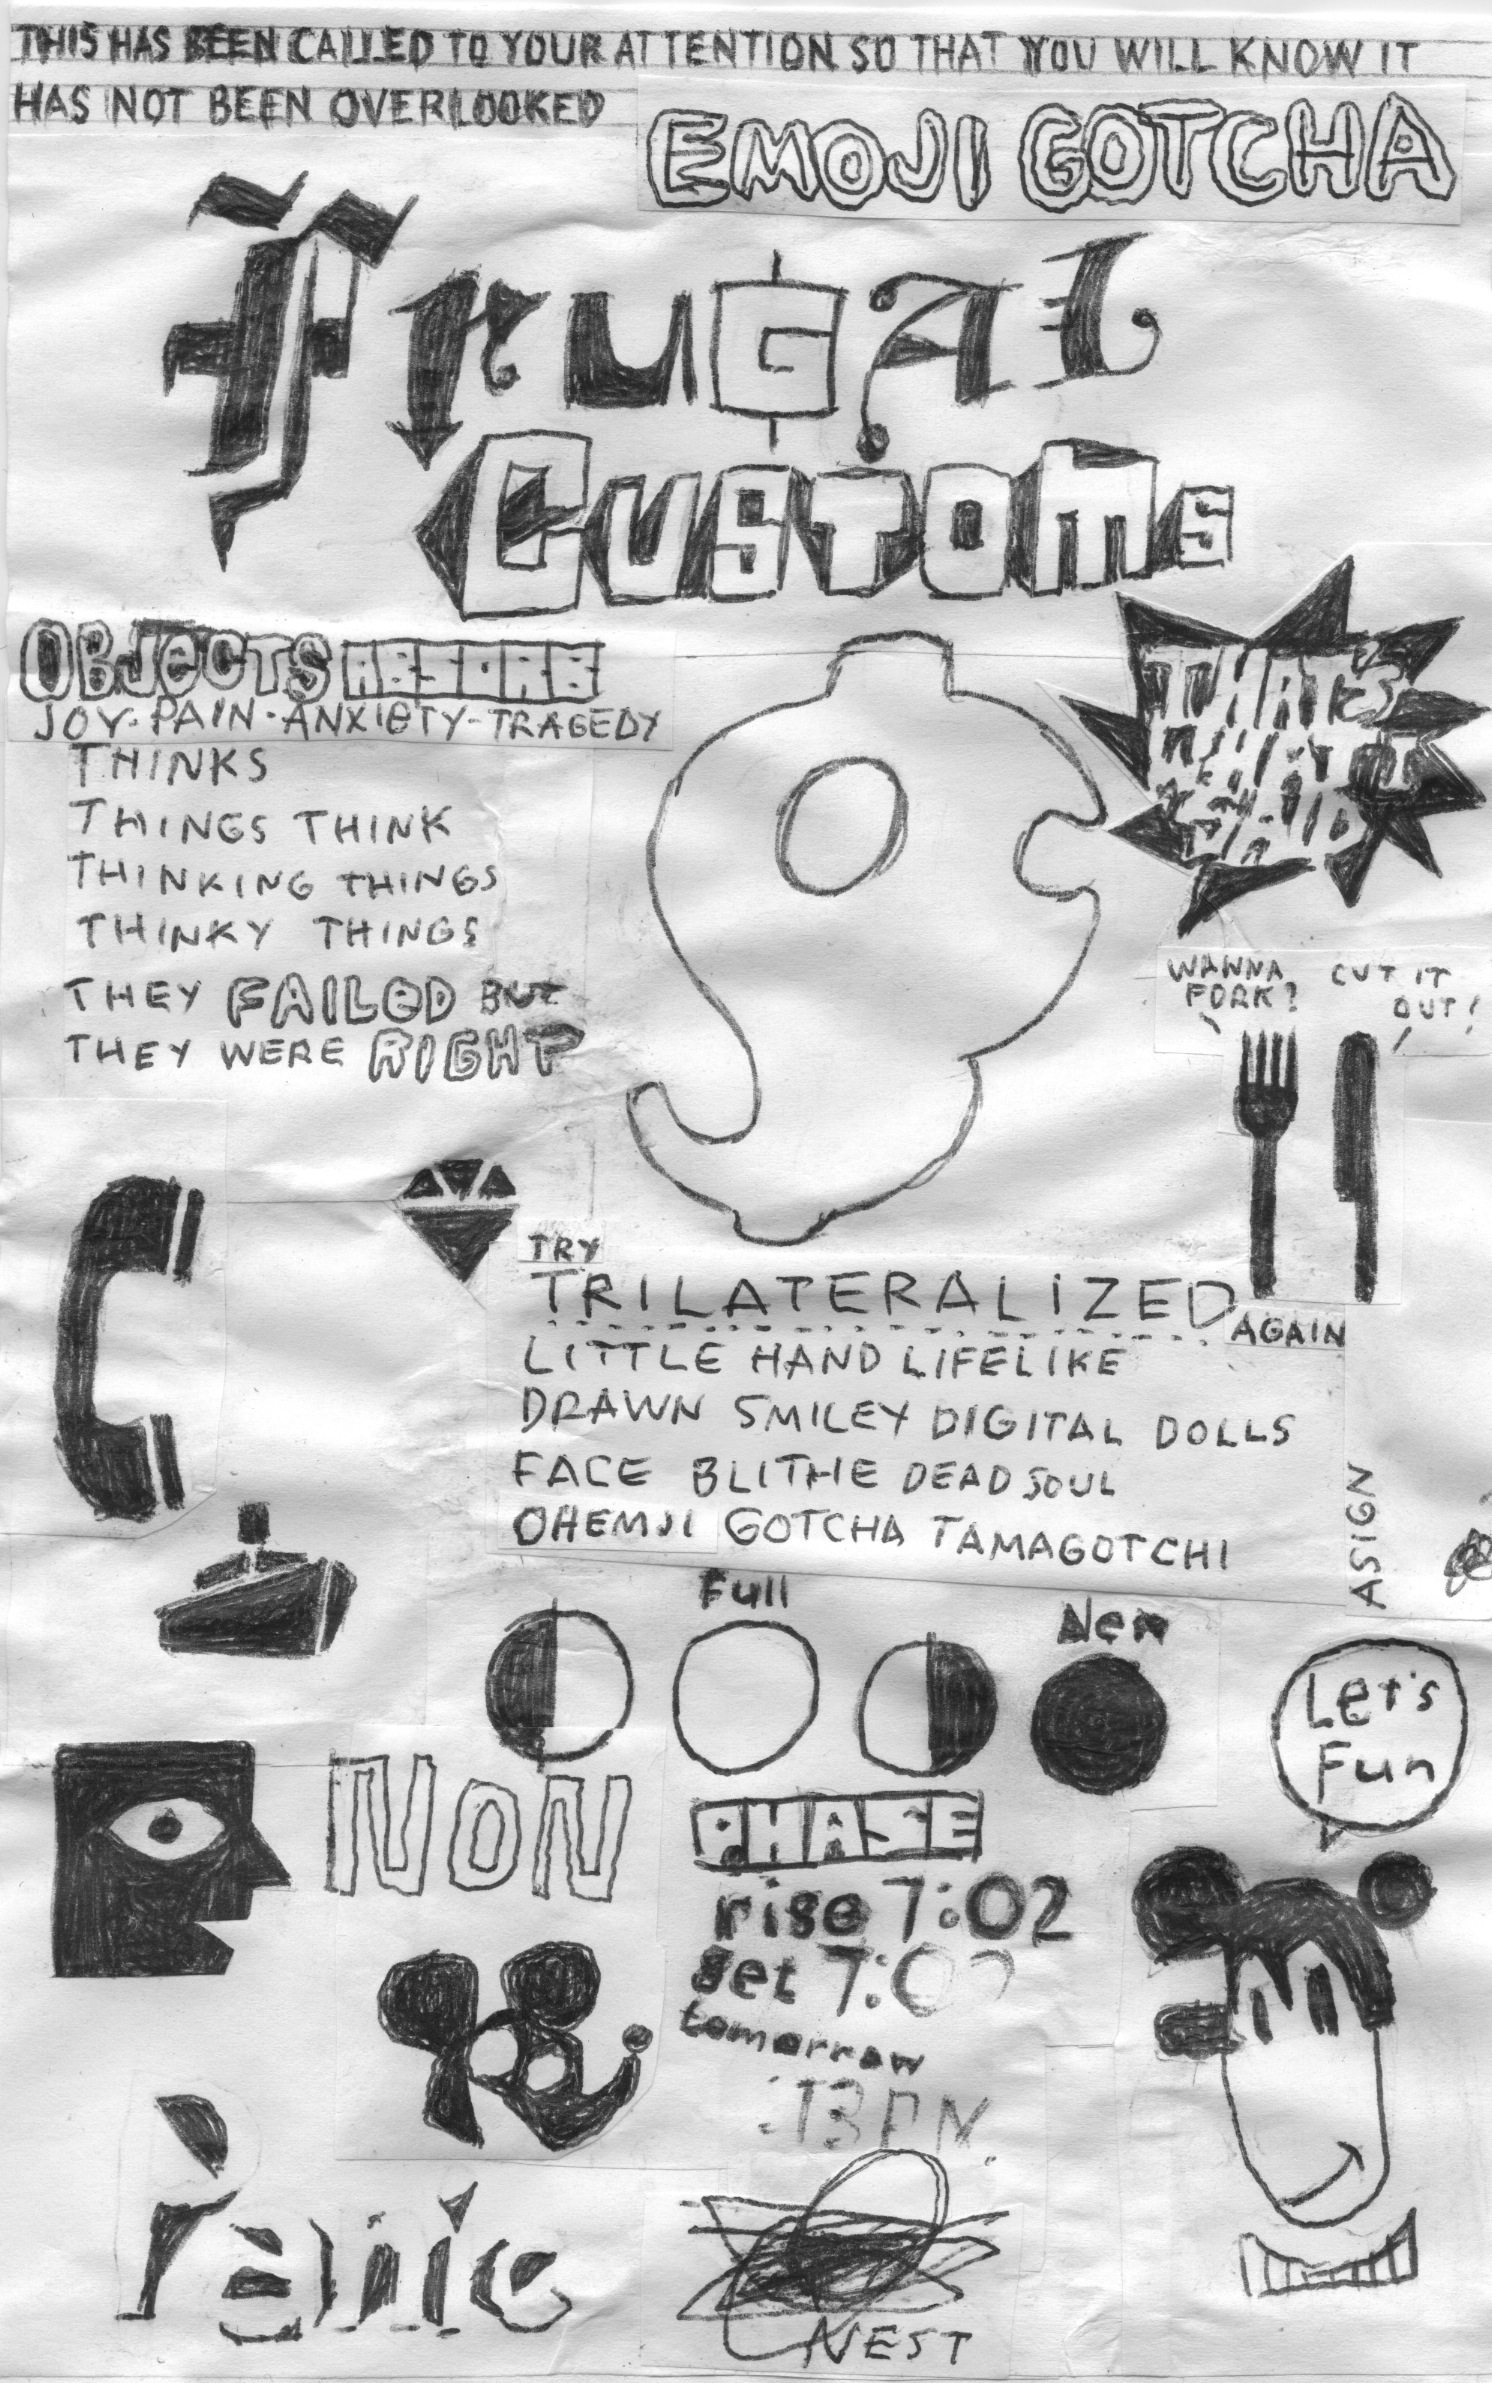 THIS HAS BEEN CALLED TO YOUR ATTENTION SO THAT YOU WILL KNOW IT
HAS NOT BEEN OVERLOOKED
EMOJI GOTCHA
FRUGAL
CUSTOMS
OBJECTS ABSORB
JOY-PAIN-ANXIETY-TRAGEDY
THINKS
THINGS THINK
THINKING THINGS
THINKY THINGS
THEY FAILED BUT
THEY WERE RIGHT
WANNA
FORK?
CUT IT
OUT!
TRY
TRILATERALIZED
AGAIN
LITTLE HAND LIFELIKE
DRAWN SMILEY DIGITAL DOLLS
FACE BLITHE DEAD SOUL
OHEMJI GOTCHA TAMAGOTCHI
ASIGN
Full
New
Let's
Fun
NON
PHASE
rise 7:02
set 7:02
tomorrow
Panic
NEST